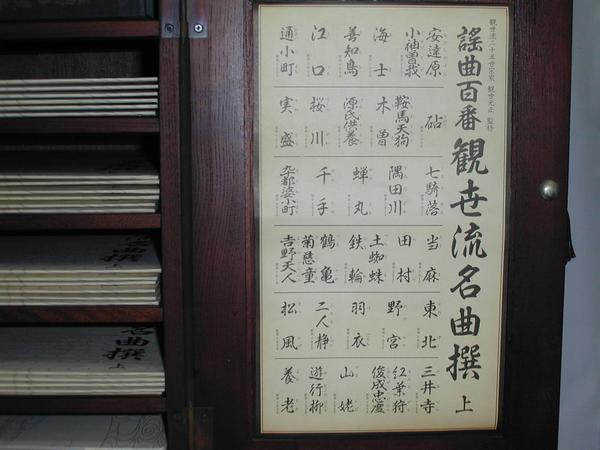 観世流二十五世宗家 観世元正 監修
謡曲百番 観世流名曲撰 上
安達原
小袖曽我
海士
善知鳥
江口
通小町
砧
鞍馬天狗
木曽
源氏供養
桜川
実盛
七騎落
隅田川
蝉丸
千手
卒都婆小町
当麻
田村
土蜘蛛
鉄輪
鶴亀
菊慈童
吉野天人
東北
野宮
羽衣
二人静
松風
三井寺
紅葉狩
俊成忠度
山姥
遊行柳
養老
名曲撰 上
名曲撰
上